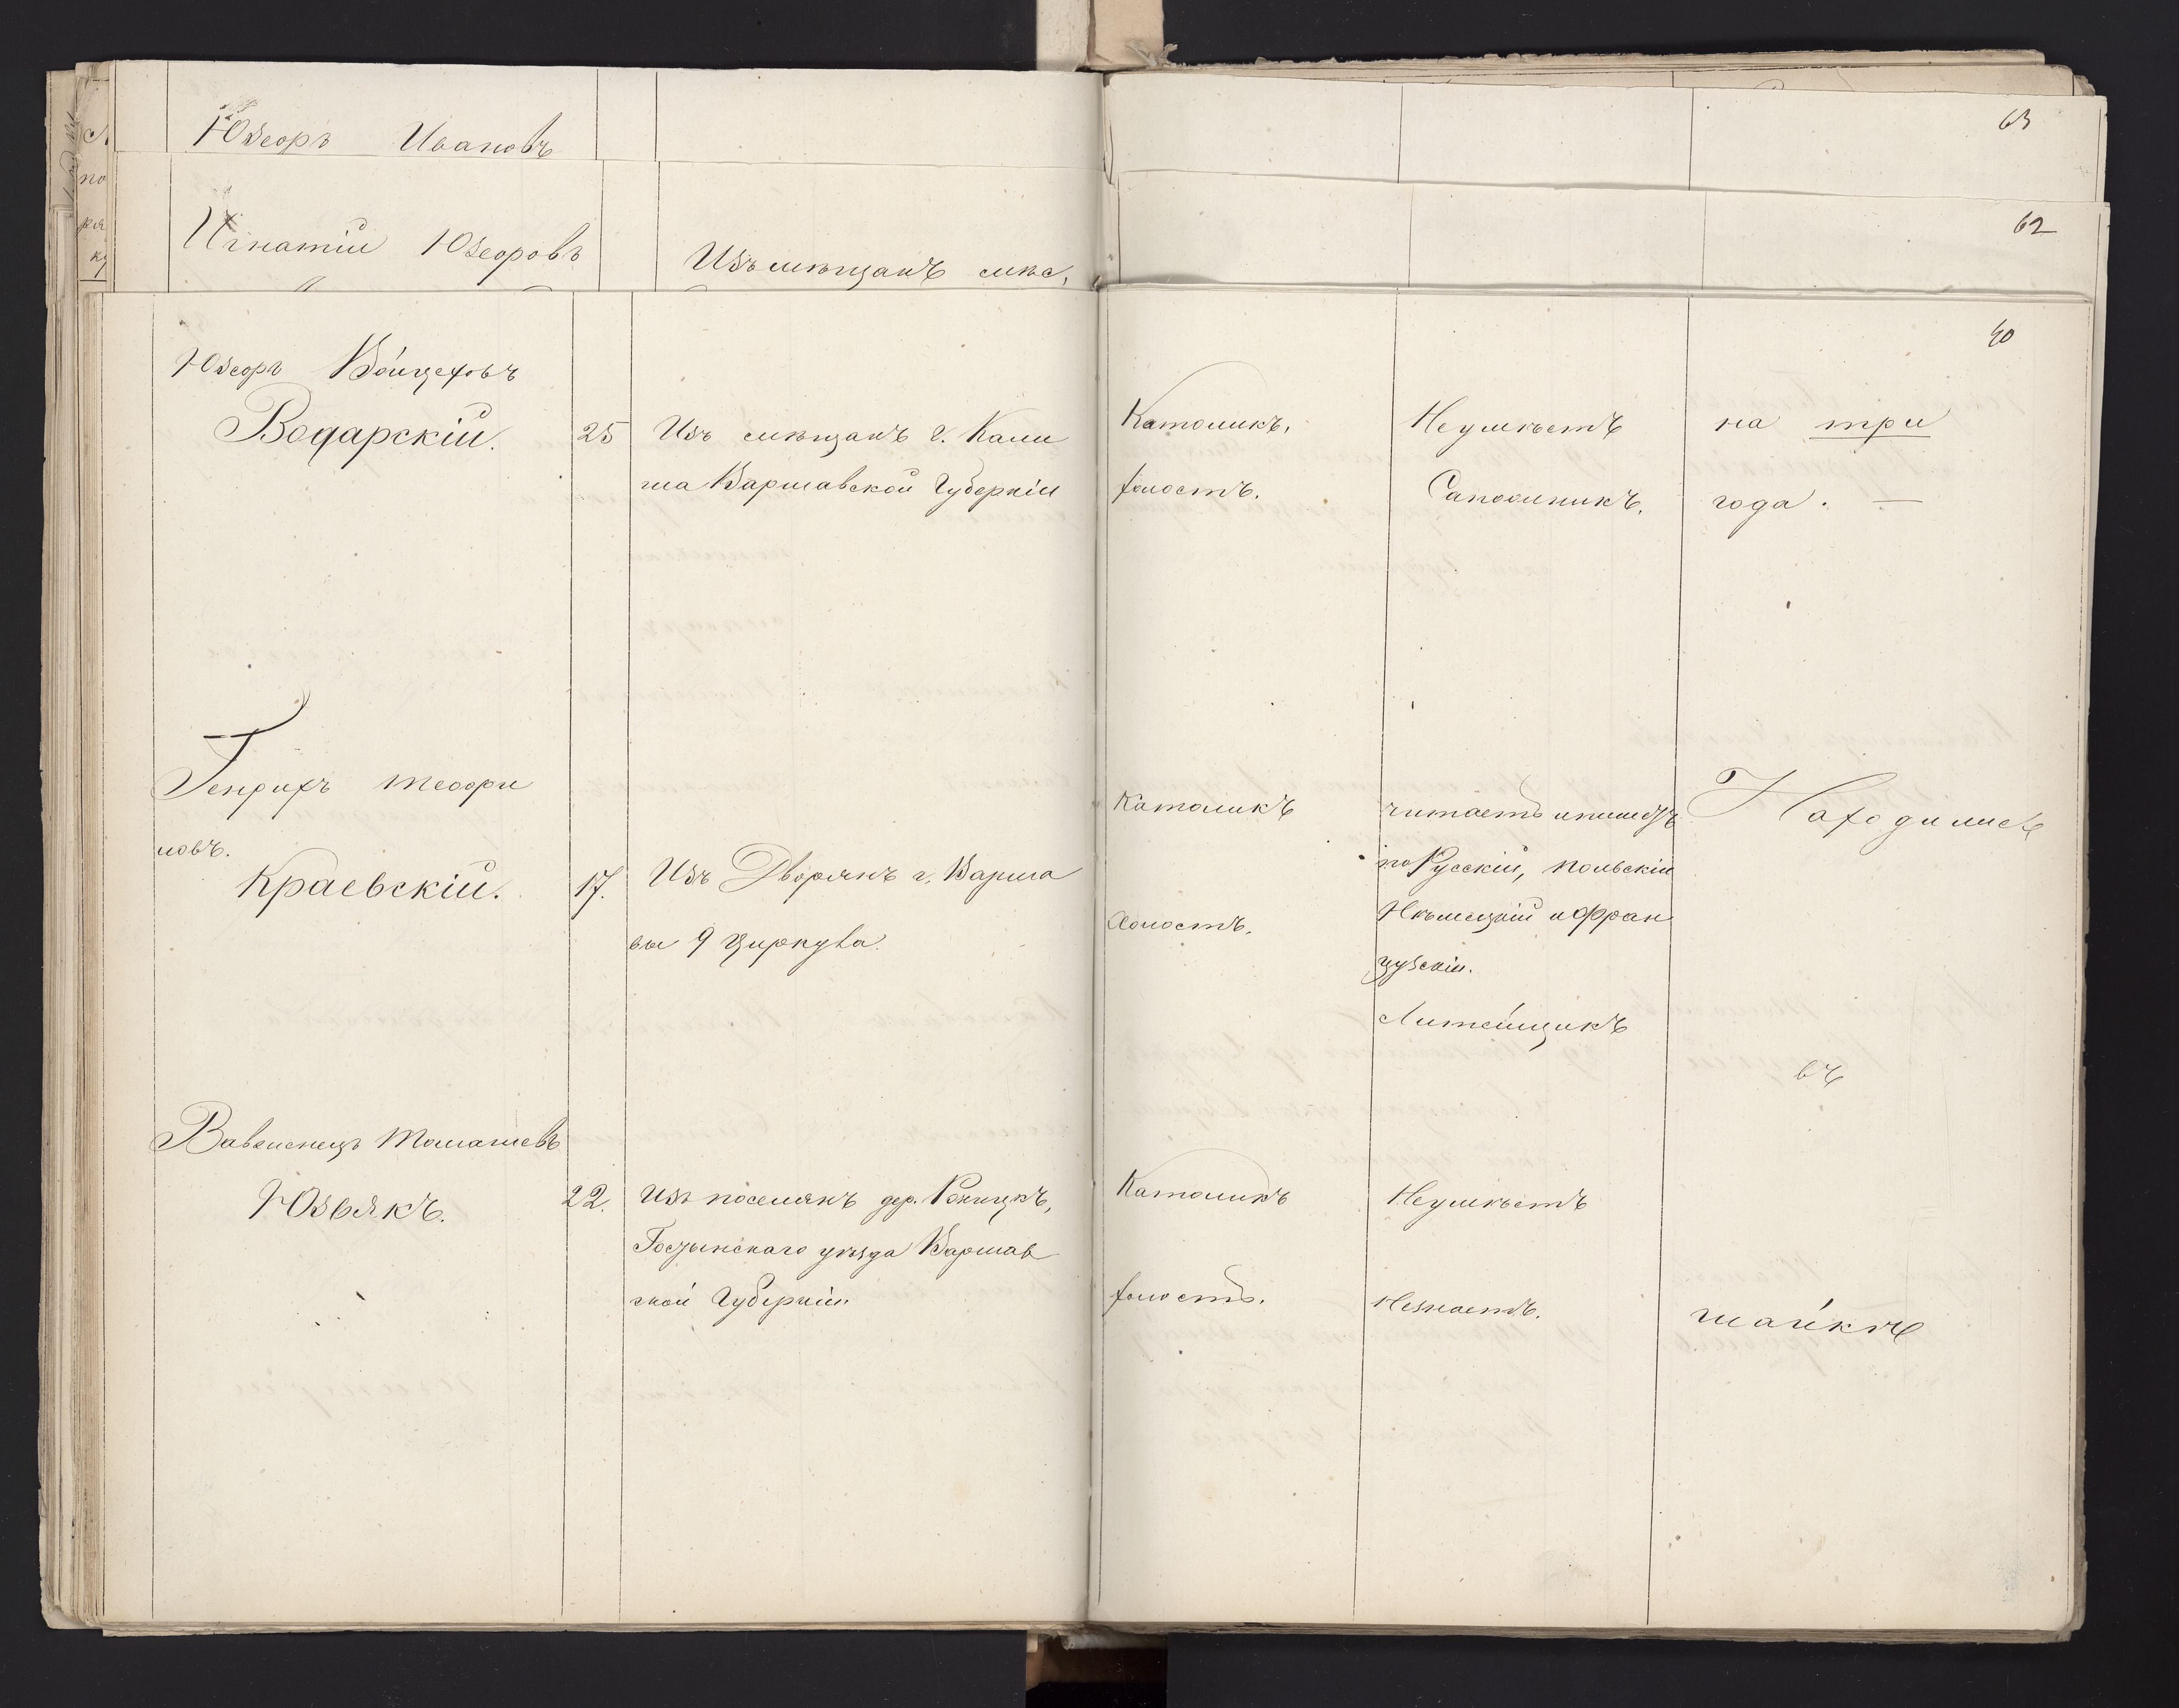 Юзефъ Ивановъ
63
Игнатій Юзефовъ
Изъ мѣщанъ мѣс.
62
40
Юзефъ Войцеховъ
Водарскій.
25
Изъ мѣщанъ г. Кали
ша Варшавской Губерніи
Католикъ.
холостъ.
Неумѣетъ
Сапожникъ.
на три
года. —
Генрихъ Теофи
ловъ.
Краевскій.
17.
Изъ Дворянъ г. Варша
вы 9 Циркула.
Католикъ
Холостъ.
читаетъ и пишетъ
по Русскій, польскій
Нѣмецкій и Фран
цузскій.
Литейщикъ
Находились
въ
Вавженецъ Томашевъ
Юзьякъ.
22.
Изъ поселянъ дер.
Гостынскаго уѣзда Варшав
ской Губерніи.
Католикъ
холостъ.
Неумѣетъ
Незнаетъ.
шайкѣ